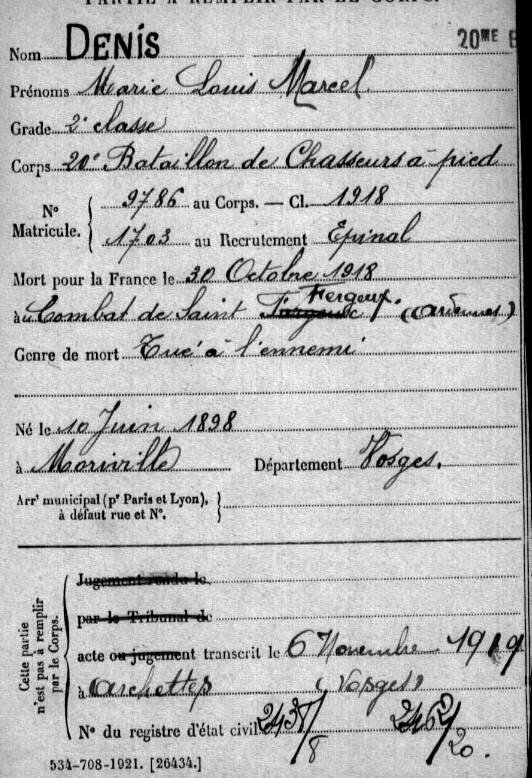 PARTIE À REMPLIR PAR LE CORPS.
20ME B
Nom DENIS
Prénoms Marie Louis Marcel
Grade 2e classe
Corps 20e Bataillon de Chasseurs à pied
No Matricule. { 9786 au Corps. — Cl. 1918
1703 au Recrutement Epinal
Mort pour la France le 30 Octobre 1918
au Combat de Saint Fergeux. (Ardennes)
Genre de mort Tué à l'ennemi
Né le 10 Juin 1898
à Moriville Département Vosges.
Arrt municipal (pr Paris et Lyon), }
à défaut rue et No.
Cette partie n'est pas à remplir par le Corps. {
Jugement rendu le
par le Tribunal de
acte ou jugement transcrit le 6 Novembre 1919
à Archettes (Vosges)
No du registre d'état civil 2438/8 2462/20.
534-708-1921. [26434.]